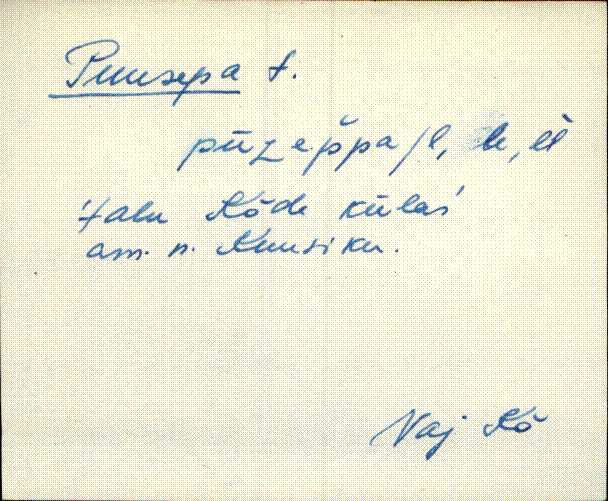 Puusepa t.
pūzeppa/l, le, lt
'talu Kõde külas
am. n. Kuusiku.
Vaj Kõ